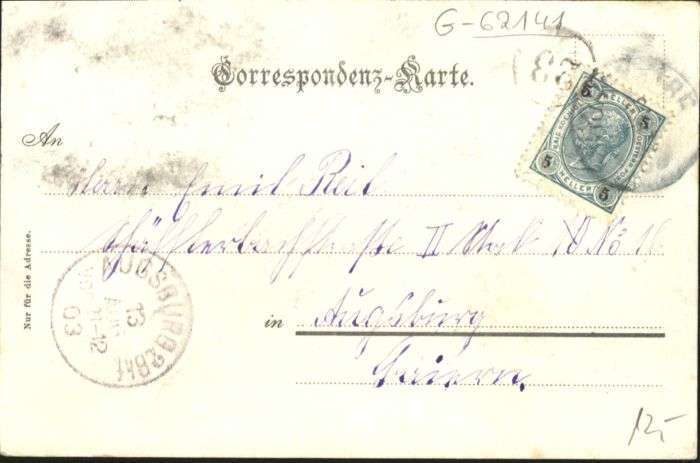 G-62141
Correspondenz-Karte.
An
Herrn Emil Reil
II Stock No 16
in Augsburg
Baiern.
Nur für die Adresse.
AUGSBURG 2 Bhf.
13
AUG
11-12
03
5
HELLER
5
5
HELLER
5
12,-